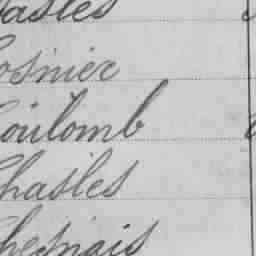 asles
osnier
Coulomb
Chasles
Chesnais